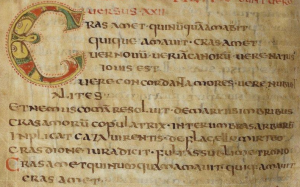 UERSUS XXII
CRAS AMET · QUI NUNQUA AMABIT ·
QUIQUE AMAUIT · CRAS AMET ·
UER NOUU · UER IA CANORU · UERE NATUS
IOUIS EST ·
UERE CONCORDANT AMORES UERE NUBUN
ALITES ·
ET NEMUS COMA RESOLUIT · DE MARITIS IMBRIBUS
CRAS AMORU COPULATRIX · INTER UMBRAS ARBORU
INPLICAT CAZA UIRENTIS · DE FLAGELLO MYRTEO
CRAS DIONE IURA DICIT · FULTA SUBLIMI TRONO ·
CRAS AMET QUI NUMQUAM AMAUIT · QUIQUE AMAUIT ·
CRAS AMET ·